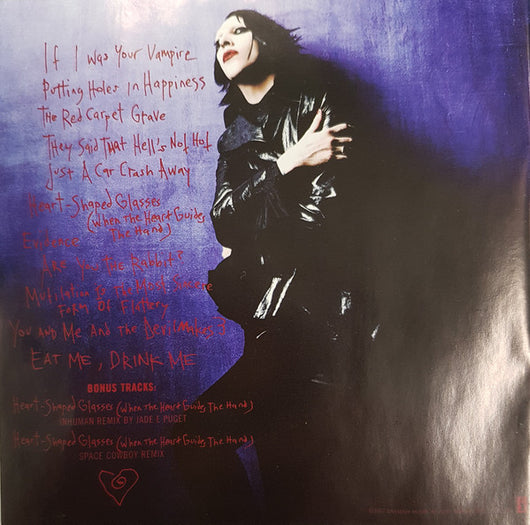 If I Was Your Vampire
Putting Holes in Happiness
The Red Carpet Grave
They Said That Hell's Not Hot
Just A Car Crash Away
Heart-Shaped Glasses
(When The Heart Guides
The Hand)
Evidence
Are You The Rabbit?
Mutilation Is The Most Sincere
Form Of Flattery
You and Me And The Devil Makes 3
EAT ME, DRINK ME
BONUS TRACKS:
Heart-Shaped Glasses (When The Heart Guides The Hand)
INHUMAN REMIX BY JADE E PUGET
Heart-Shaped Glasses (When The Heart Guides The Hand)
SPACE COWBOY REMIX